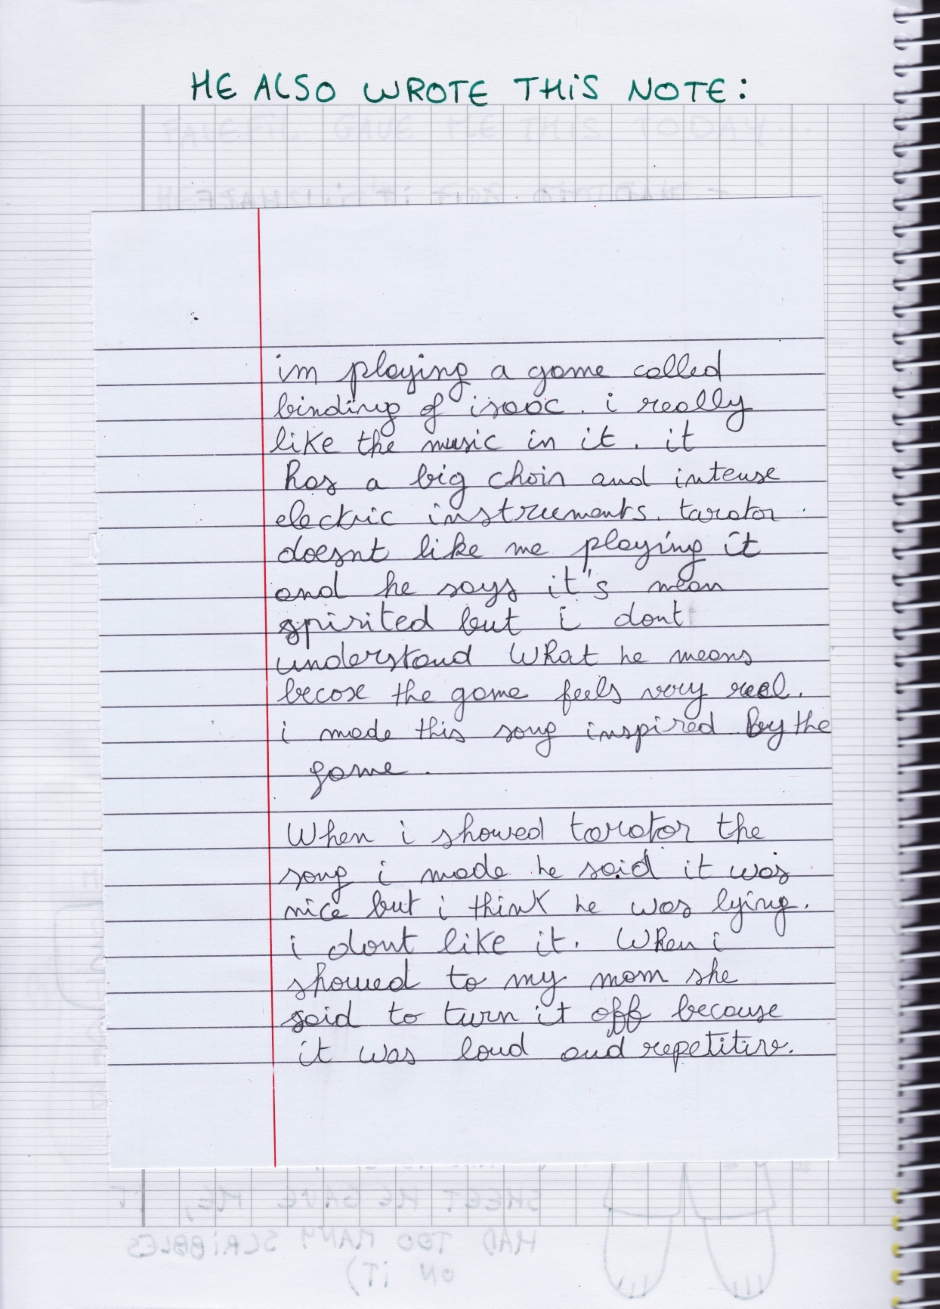 HE ALSO WROTE THIS NOTE:
im playing a game called
binding of isaac. i really
like the music in it. it
has a big choir and intense
electric instruments. tarator
doesnt like me playing it
and he says it's mean
spirited but i dont
understand what he means
becose the game feels very real.
i made this song inspired by the
game.
When i showed tarator the
song i made he said it was
nice but i think he was lying.
i dont like it. When i
showed to my mom she
said to turn it off because
it was loud and repetitive.
SHEET HE GAVE ME, IT
HAD TOO MANY SCRIBBLES
ON IT)